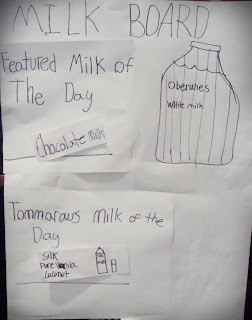 MILK BOARD
Featured Milk of
The Day
Chocolate Milk
Oberwies
White milk
Tommaraws Milk of the
Day
Silk
Pure Vanilla
Coconut